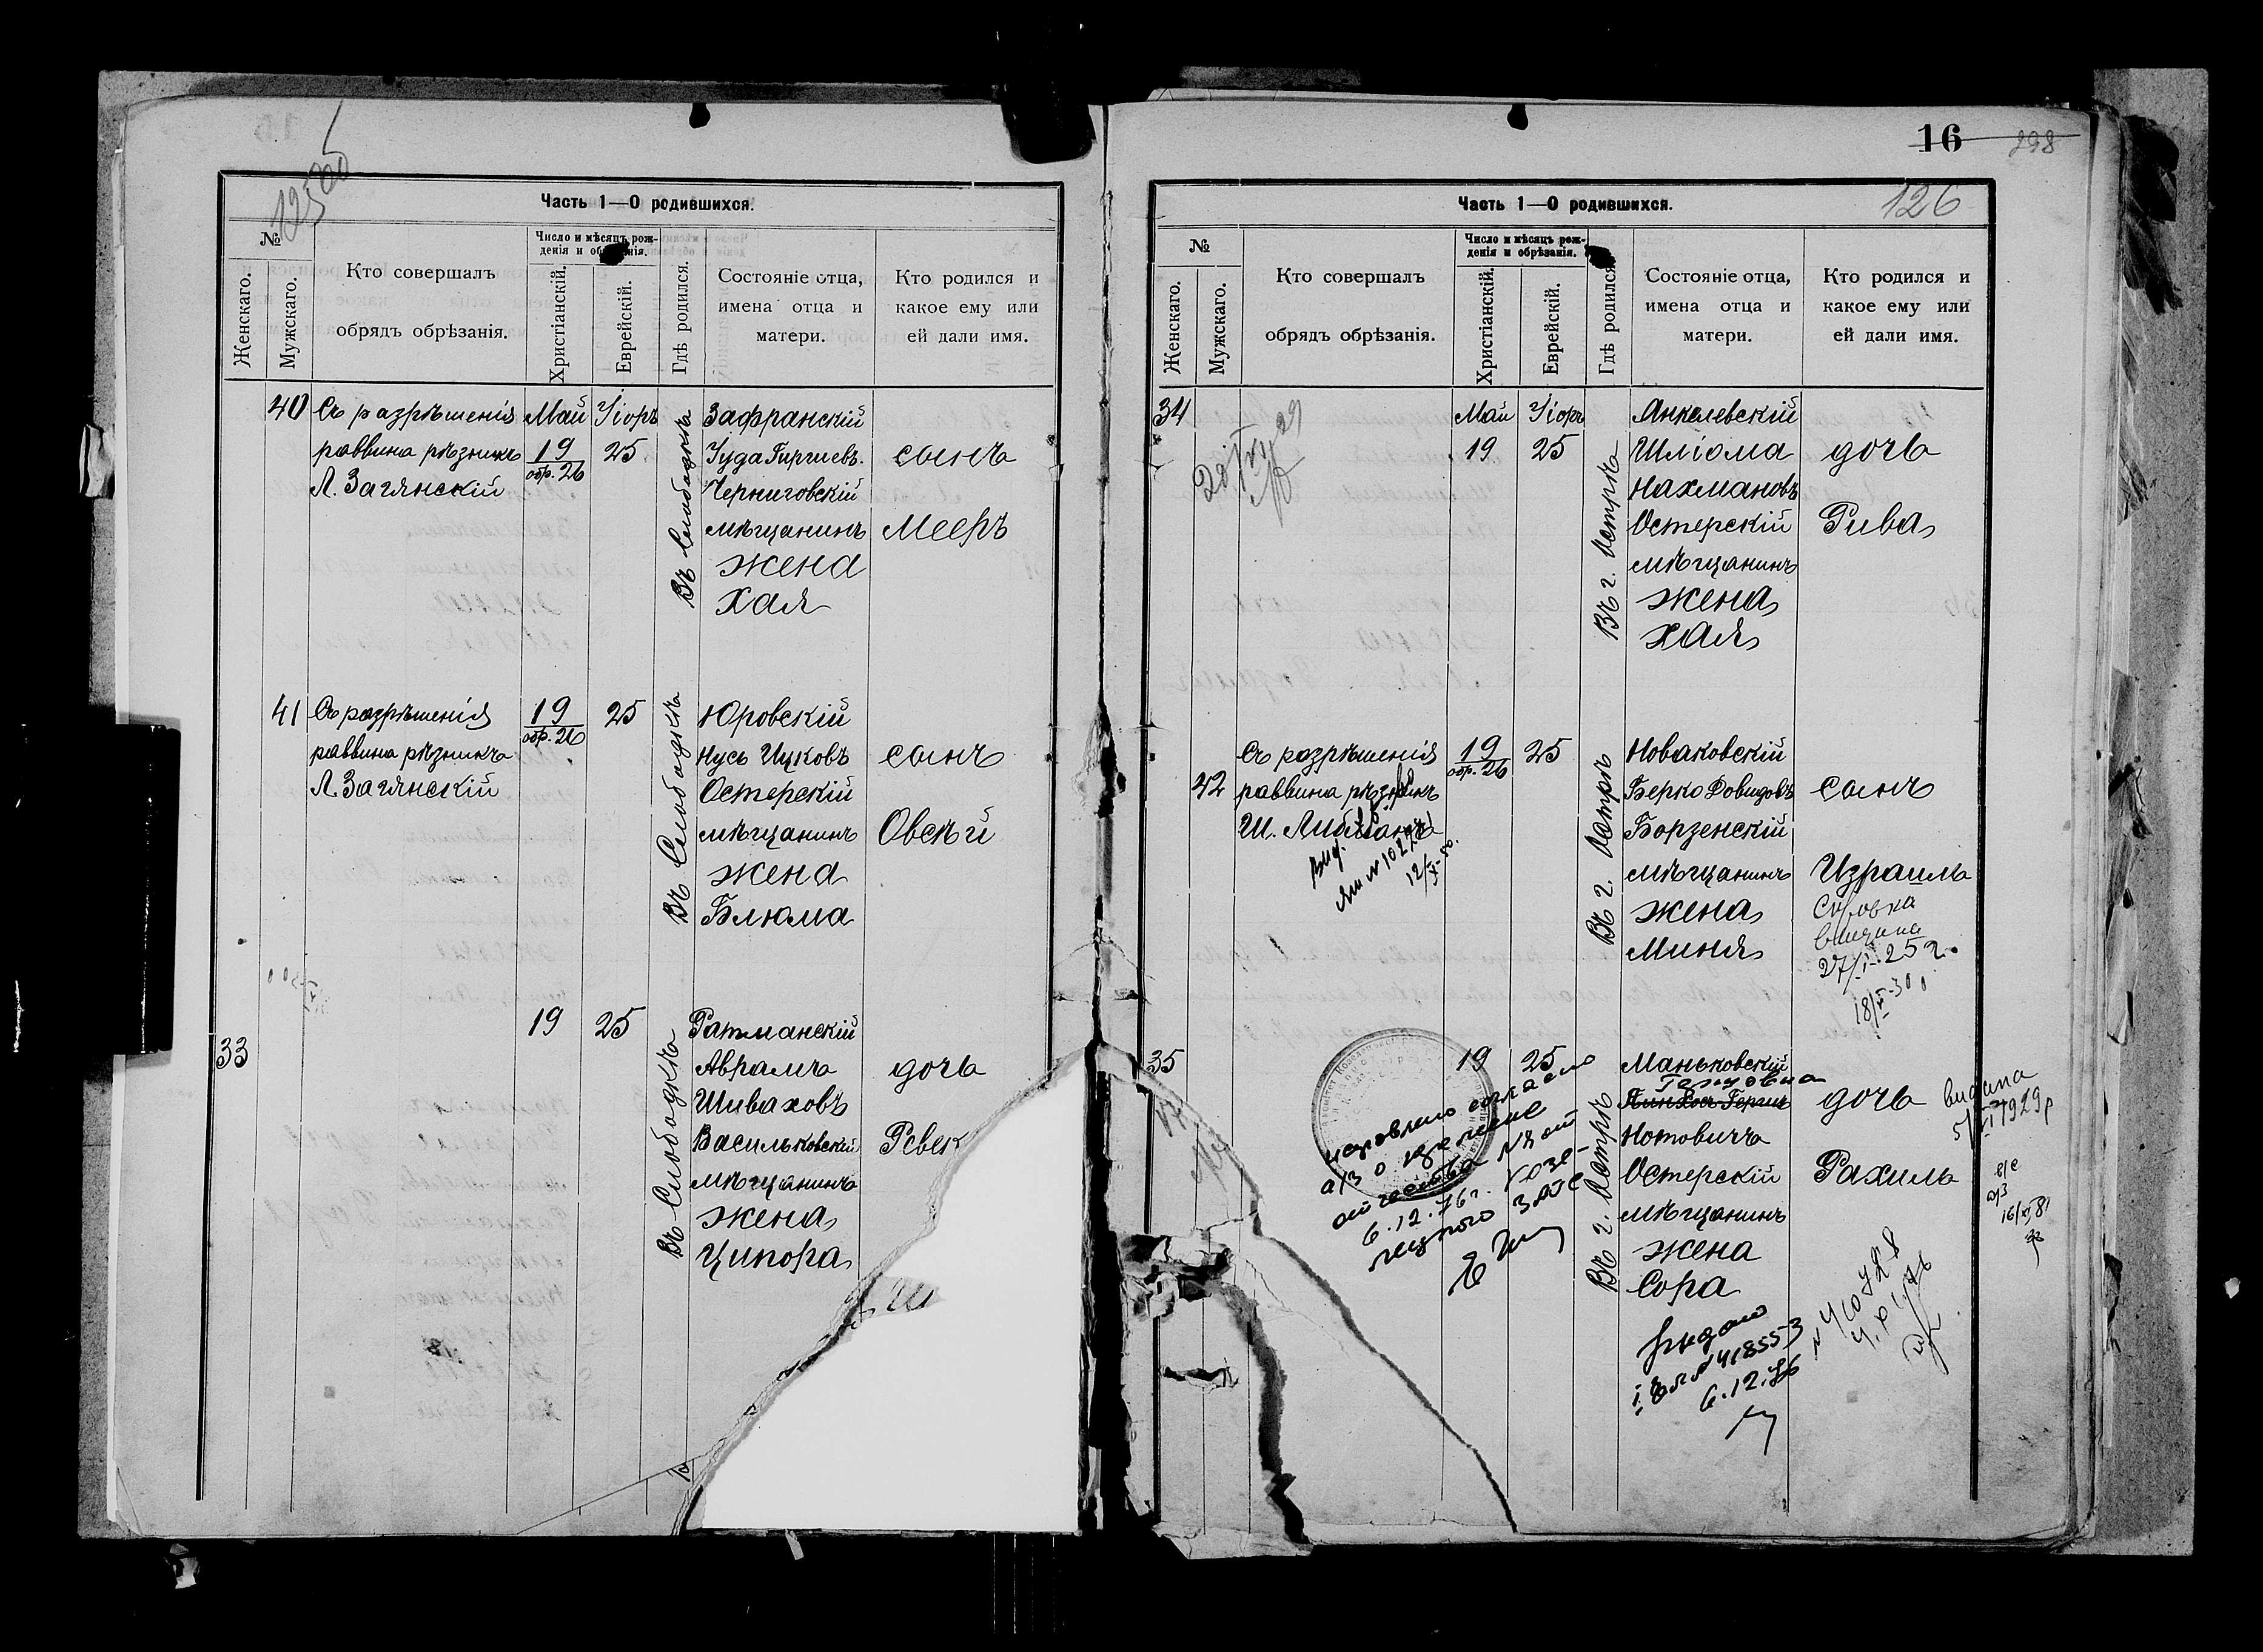 125
Часть 1—О родившихся.
№
Женскаго.
Мужскаго.
Кто совершалъ
обрядъ обрѣзанія.
Число и мѣсяцъ рож-
денія и обрѣзанія.
Христіанскій.
Еврейскій.
Гдѣ родился.
Состояніе отца,
имена отца и
матери.
Кто родился и
какое ему или
ей дали имя.
40
Съ разрѣшенія
раввина рѣзникъ
Л. Загянскій
Май
19
обр. 26
Ііоръ
25
Въ Слободкѣ
Зафранскій
Іуда Гиршевъ
Черниговскій
мѣщанинъ
жена
Хая
сынъ
Мееръ
41
Съ разрѣшенія
раввина рѣзникъ
Л. Загянскій
19
обр. 26
25
Въ Слободкѣ
Юровскій
Нусь Ицковъ
Остерскій
мѣщанинъ
жена
Блюма
сынъ
Овсѣй
33
19
25
Въ Слободкѣ
Ратманскій
Аврамъ
Шиваховъ
Васильковскій
мѣщанинъ
жена
Ципора
дочь
Ревек
16
298
126
Часть 1—О родившихся.
№
Женскаго.
Мужскаго.
Кто совершалъ
обрядъ обрѣзанія.
Число и мѣсяцъ рож-
денія и обрѣзанія.
Христіанскій.
Еврейскій.
Гдѣ родился.
Состояніе отца,
имена отца и
матери.
Кто родился и
какое ему или
ей дали имя.
34
Май
19
Ііоръ
25
Въ г. Острѣ
Анкелевскій
Шліома
Нахмановъ
Остерскій
мѣщанинъ
жена
Хая
дочь
Рива
42
Съ разрѣшенія
раввина рѣзникъ
Ш. Либманъ
19
обр. 26
25
Въ г. Острѣ
Новаковскій
Берко Довидовъ
Борзенскій
мѣщанинъ
жена
Миня
сынъ
Израиль
Справка
видана
27/I-25 г.
18/X-30
35
19
25
Въ г. Острѣ
Маньковскій
Гершовна
Пинхосъ-Гершъ
Нотовичъ
Остерскій
мѣщанинъ
жена
Сора
дочь
Рахиль
видана
5/XI 1929 р
исправлено согласно
а/з о перемене
отчества № от
6.12.76г.
ЗАГС
Видано
№ 418553
6.12.76
16/XI 81